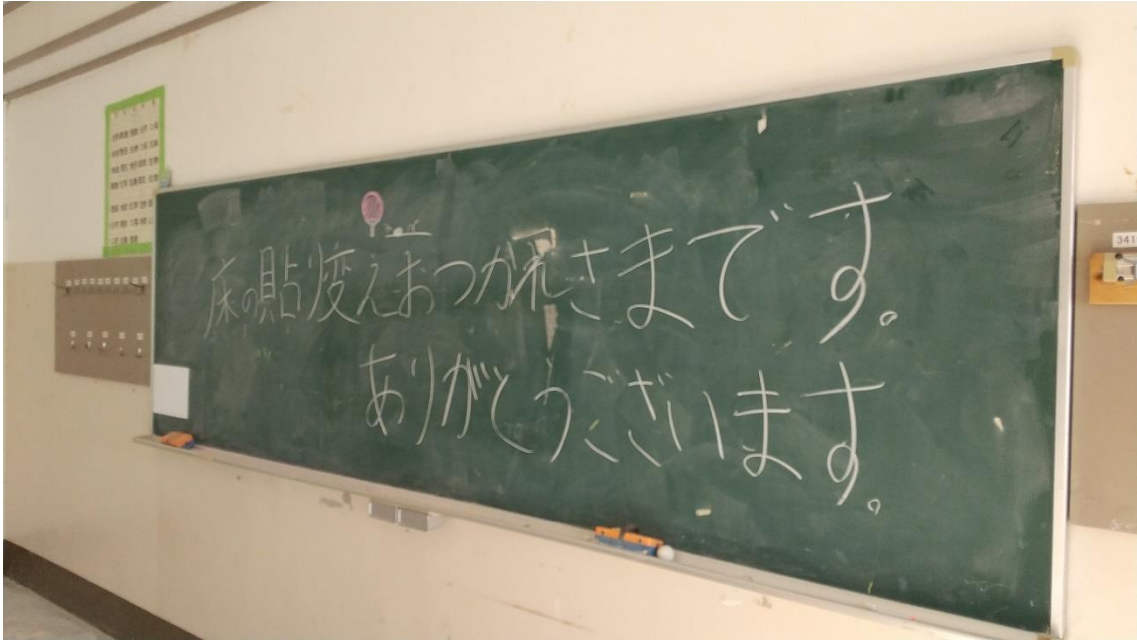 床の貼り変えおつかれさまです。
ありがとうございます。
341